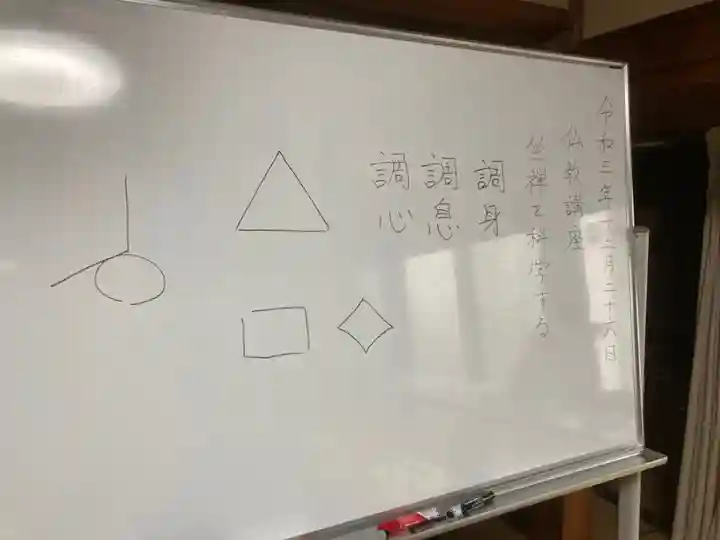 令和三年十二月二十八日
仏教講座
坐禅を科学する
調身
調息
調心